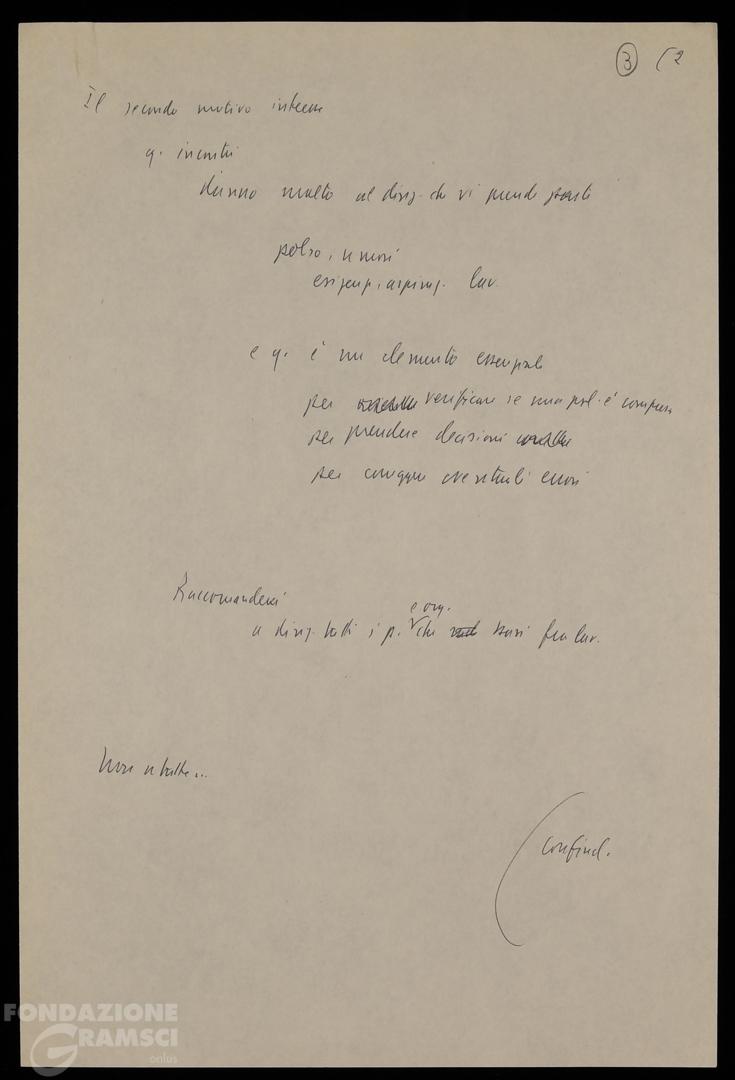 ③ (2
Il secondo motivo interesse
q. incontri
danno molto al dirig. che vi prende parte
polso, umori
esigenze, aspiraz. lav.
e q. è un elemento essenziale
per verificare se una pol. è compresa
per prendere decisioni
per correggere eventuali errori
Raccomanderei
e org.
a dirig. tutti i p. che basi fra lav.
Non si tratta...
(Confind.
FONDAZIONE
GRAMSCI
onlus